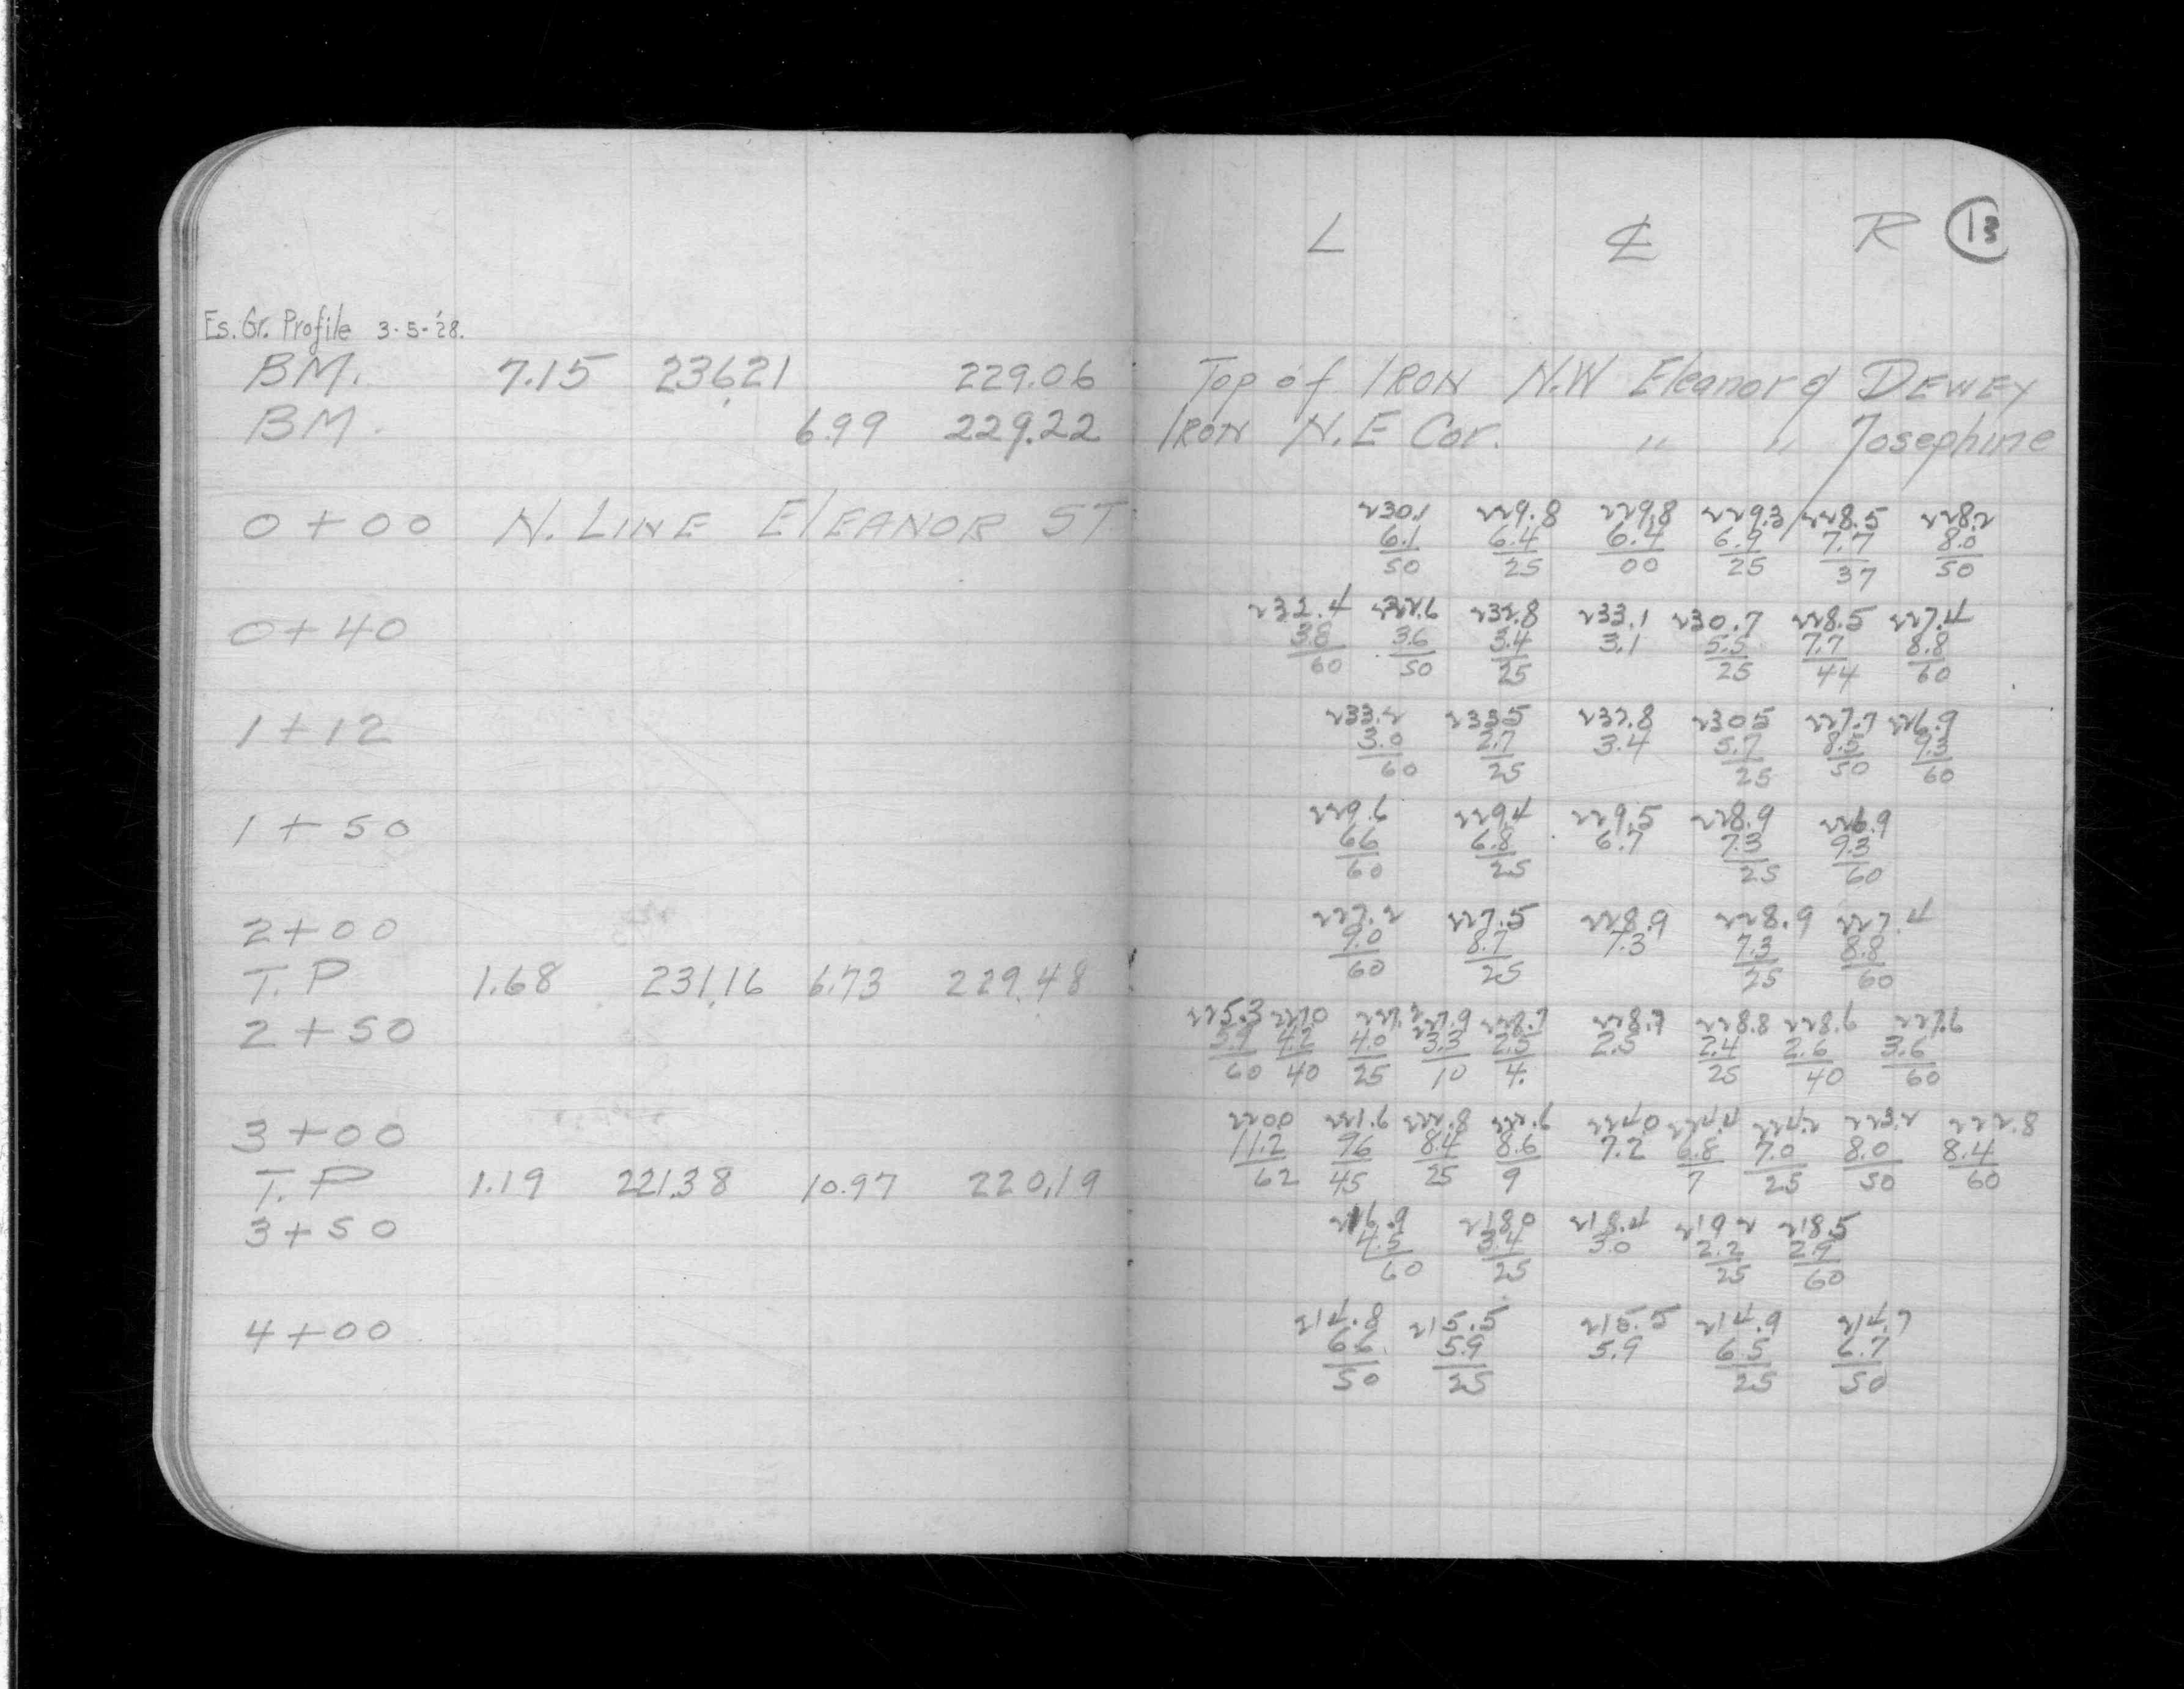 L ⅊ R 13
Es. Gr. Profile 3-5-'28.
BM. 7.15 236.21 229.06 Top of IRON N.W Eleanor & DEWEY
BM. 6.99 229.22 IRON N.E Cor. " " Josephine
0+00 N. LINE ELEANOR ST
230.1 229.8 229.8 229.3 228.5 228.2
6.1 6.4 6.4 6.9 7.7 8.0
50 25 00 25 37 50
232.4 232.6 232.8 233.1 230.7 228.5 227.4
0+40 3.8 3.6 3.4 3.1 5.5 7.7 8.8
60 50 25 25 44 60
233.2 233.5 232.8 230.5 227.7 226.9
1+12 3.0 2.7 3.4 5.7 8.5 9.3
60 25 25 50 60
229.6 229.4 229.5 228.9 226.9
1+50 6.6 6.8 6.7 7.3 9.3
60 25 25 60
227.2 227.5 228.9 228.9 227.4
2+00 9.0 8.7 7.3 7.3 8.8
60 25 25 60
T.P 1.68 231.16 6.73 229.48
225.3 227.0 227.2 227.9 228.7 228.7 228.8 228.6 227.6
2+50 5.9 4.2 4.0 3.3 2.5 2.5 2.4 2.6 3.6
60 40 25 10 4. 25 40 60
220.0 221.6 222.8 222.6 224.0 224.4 224.2 223.2 222.8
3+00 11.2 9.6 8.4 8.6 7.2 6.8 7.0 8.0 8.4
62 45 25 9 7 25 50 60
T.P 1.19 221.38 10.97 220.19
216.9 218.0 218.4 219.2 218.5
3+50 4.5 3.4 3.0 2.2 2.9
60 25 25 60
214.8 215.5 215.5 214.9 214.7
4+00 6.6 5.9 5.9 6.5 6.7
50 25 25 50